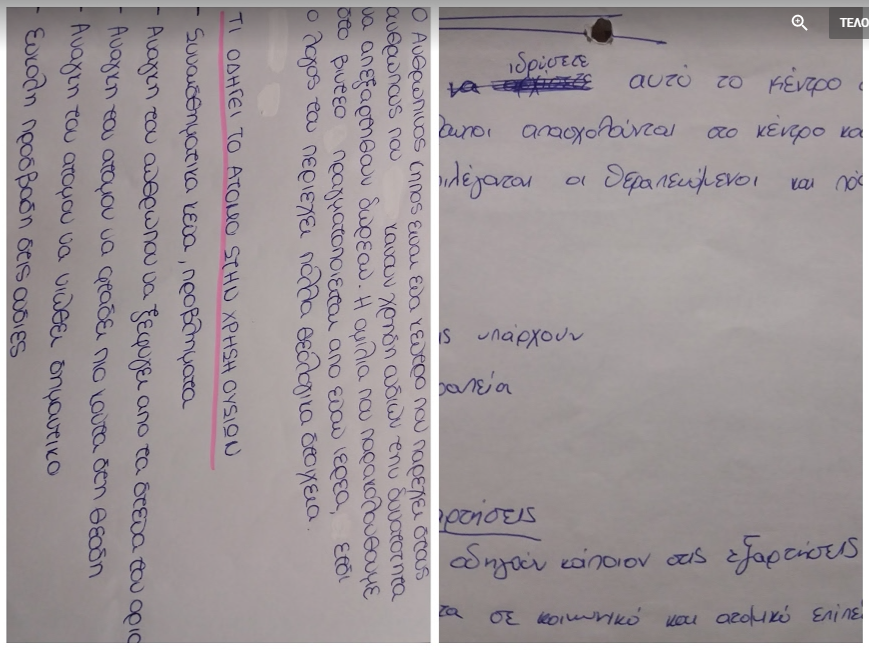 Ο Ανθρωπινος κηπος ειναι ενα κεντρο που παρεχει στους
ανθρωπους που κανουν χρηση ουσιων την δυνατοτητα
να απεξαρτηθουν δωρεαν. Η ομιλια που παρακολουθουμε
στο βιντεο πραγματοποιειται απο εναν ιερεα, ετσι
ο λογος του περιεχει πολλα θεολογικα στοιχεια.
ΤΙ ΟΔΗΓΕΙ ΤΟ ΑΤΟΜΟ ΣΤΗΝ ΧΡΗΣΗ ΟΥΣΙΩΝ
- Συναισθηματικα κενα, προβληματα
- Αναγκη του ανθρωπου να ξεφυγει απο τα στενα του ορια
- Αναγκη του ατομου να φταδει πιο κοντα στη θεση
- Αναγκη του ατομου να νιωθει σημαντικο
- Ευκολη προσβαση στις ουσιες
ΤΕΛΟ
ιδρύσετε
να αυτό το κέντρο
απασχολούνται στο κέντρο κα
ιλέγονται οι θεραπευόμενοι και πό
ς υπάρχουν
ραπεία
ρτήσεις
οδηγούν κάποιον στις εξαρτήσεις
τα σε κοινωνικό και ατομικό επίπε